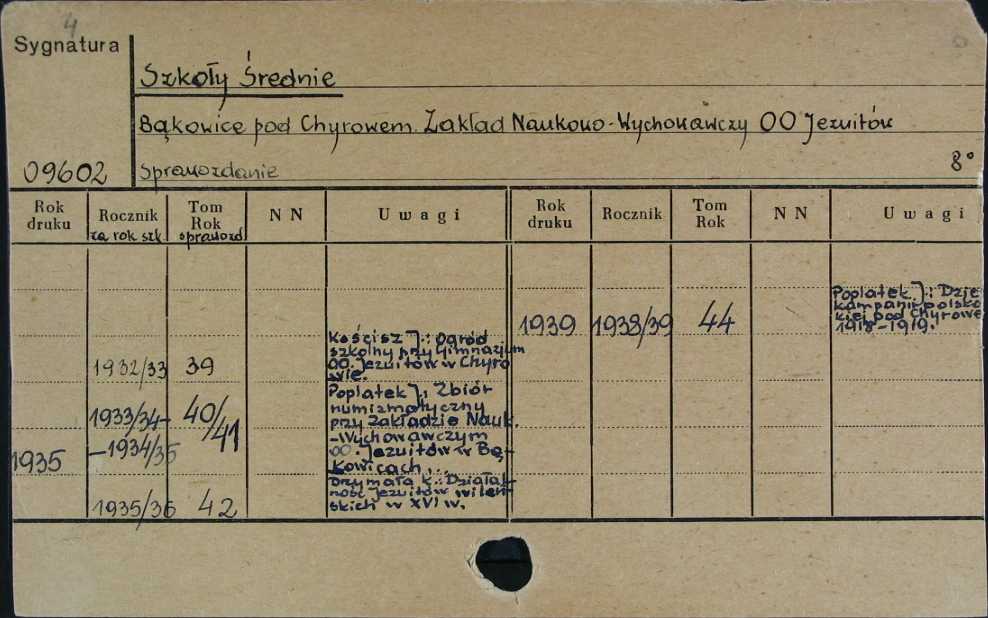 4
Sygnatura
Szkoły Średnie
Bąkowice pod Chyrowem. Zakład Naukowo-Wychowawczy OO Jezuitów
09602
Sprawozdanie
8°
Rok druku
Rocznik
za rok szk.
Tom
Rok
sprawozd
NN
Uwagi
Rok druku
Rocznik
Tom
Rok
NN
Uwagi
1932/33
39
Kościsz J.: Ogród
szkolny przy Gimnazjum
OO. Jezuitów w Chyro
wie.
1935
1933/34-
-1934/35
40/41
Poplatek J., Zbiór
numizmatyczny
przy Zakładzie Nauk.
-Wychowawczym
OO. Jezuitów w Bą-
kowicach...
1935/36
42
Drzymała K.: Działal-
ność jezuitów wileń-
skich w XVI w.
1939
1938/39
44
Poplatek J.: Dzie
kampanii polsko
kiej pod Chyrowe
1918-1919.